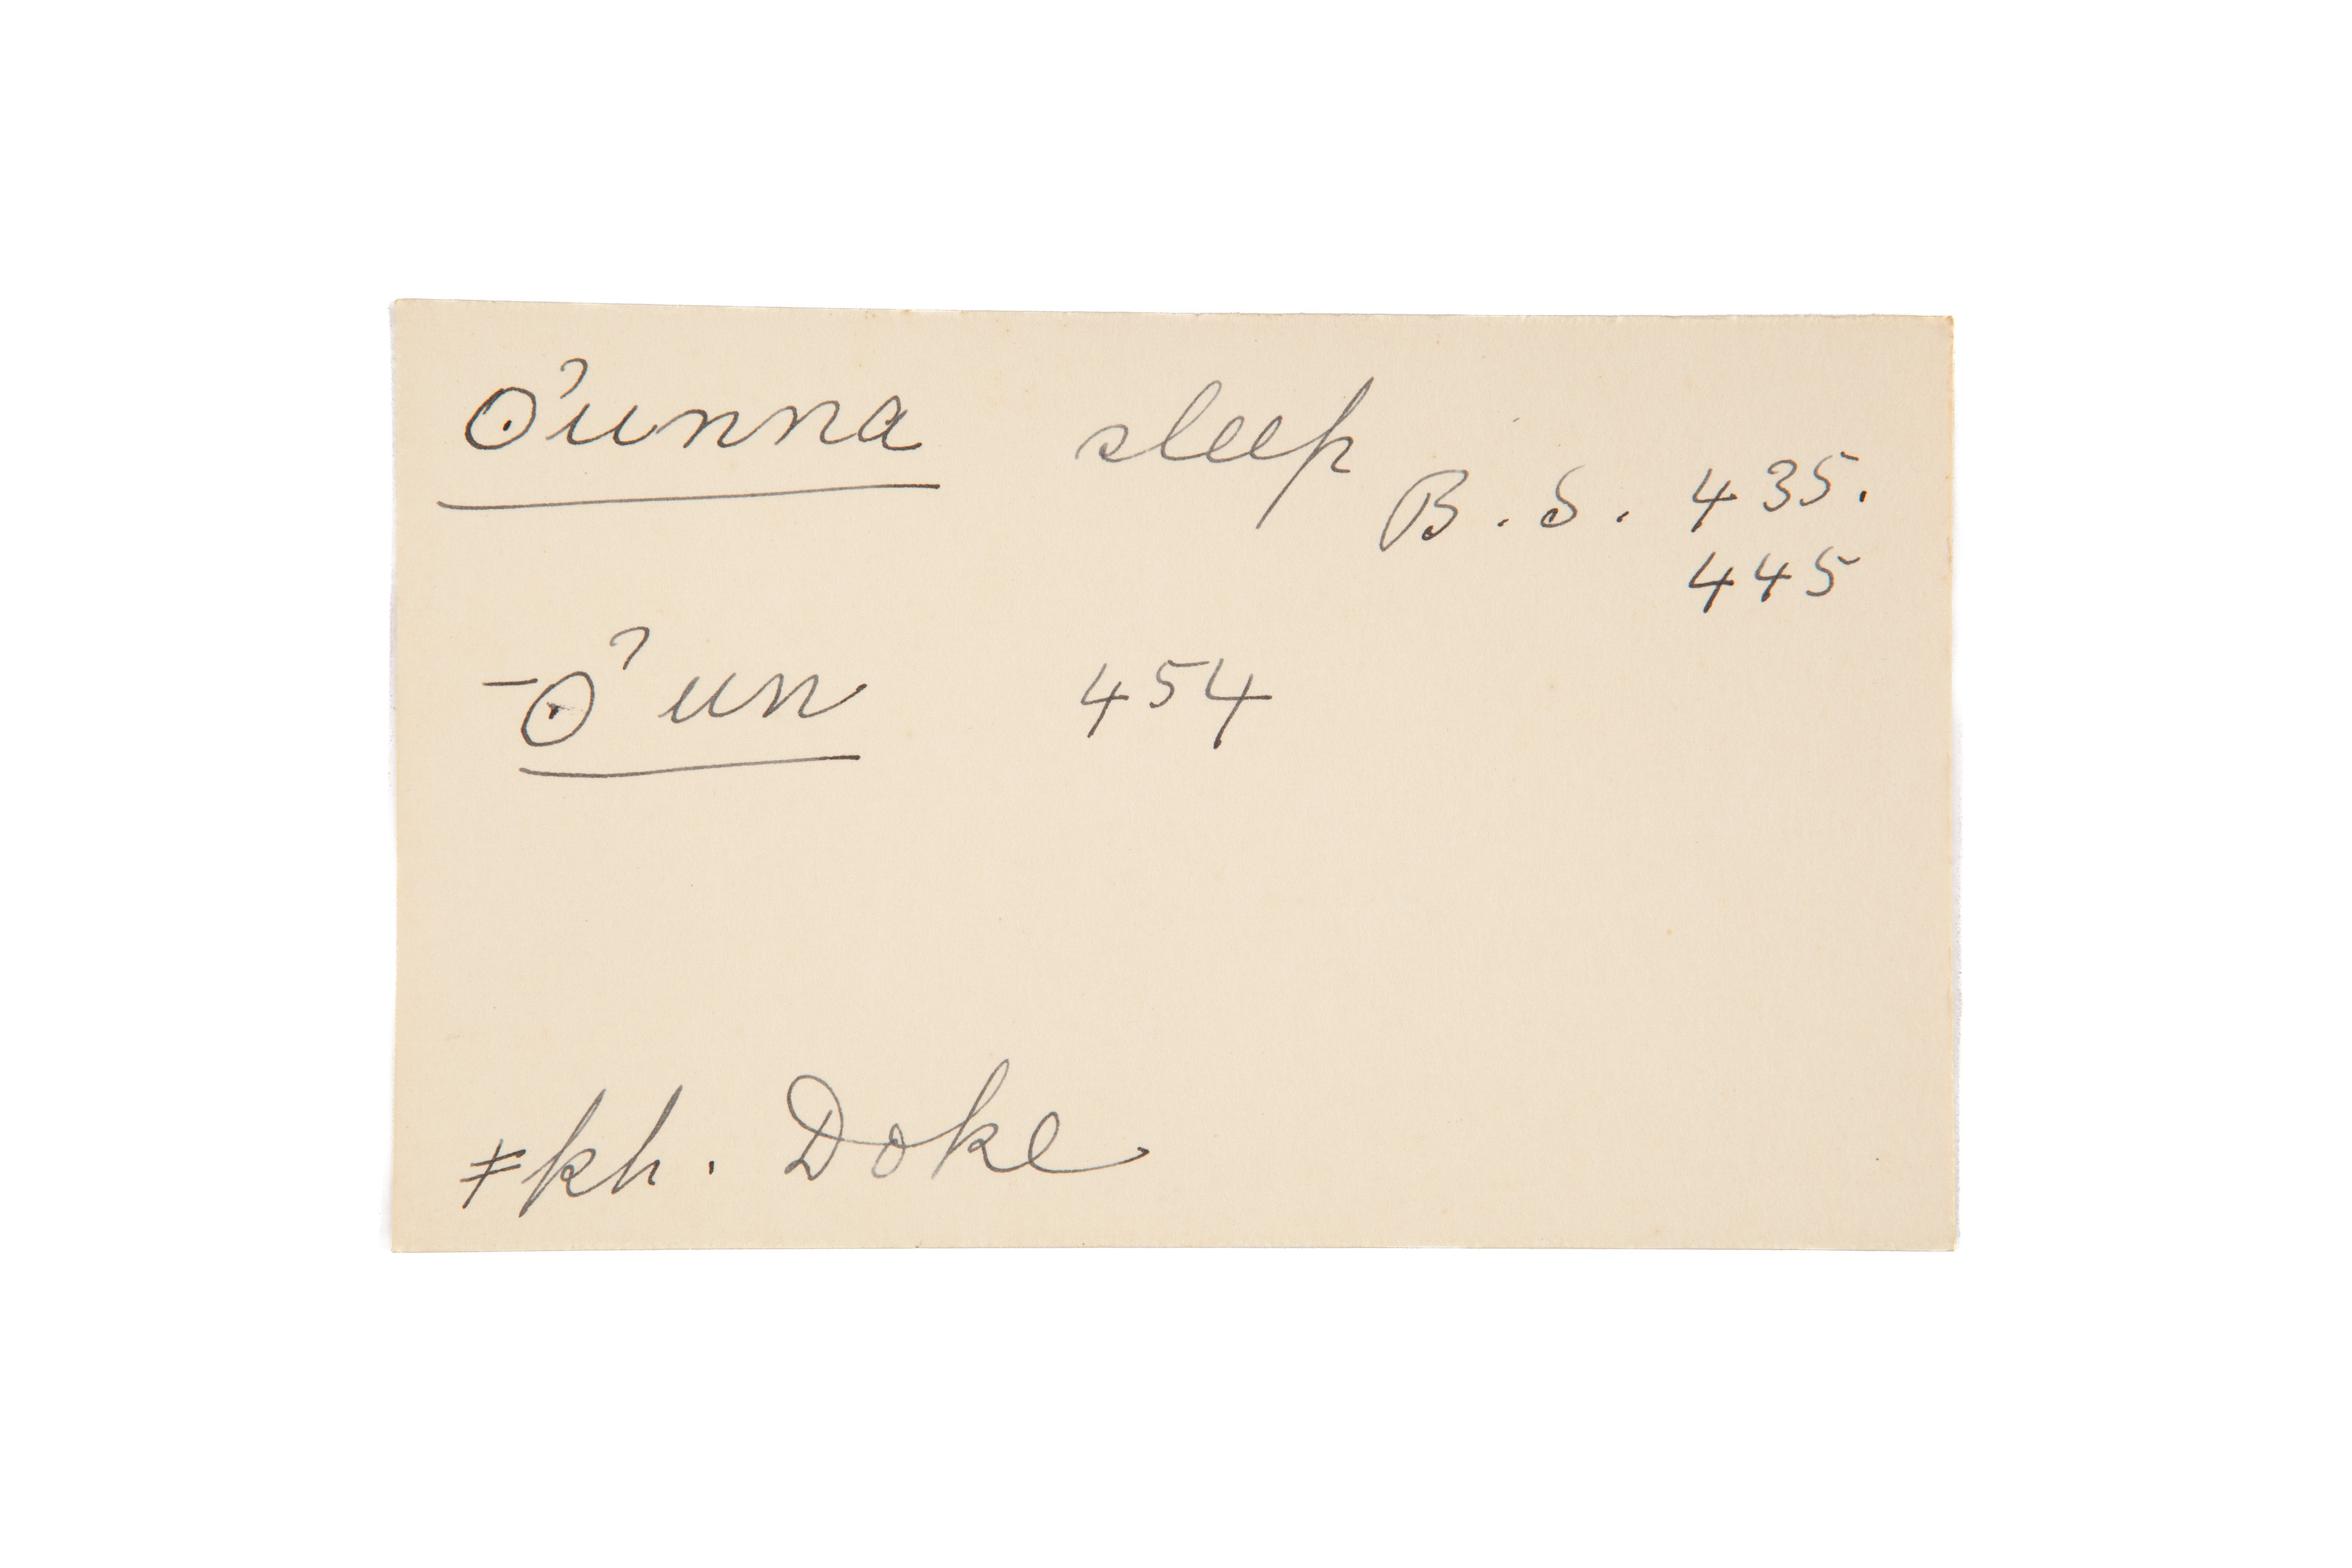 ʘˀunna sleep B. S. 435.
445
-ʘˀun 454
ǂkh. Doke